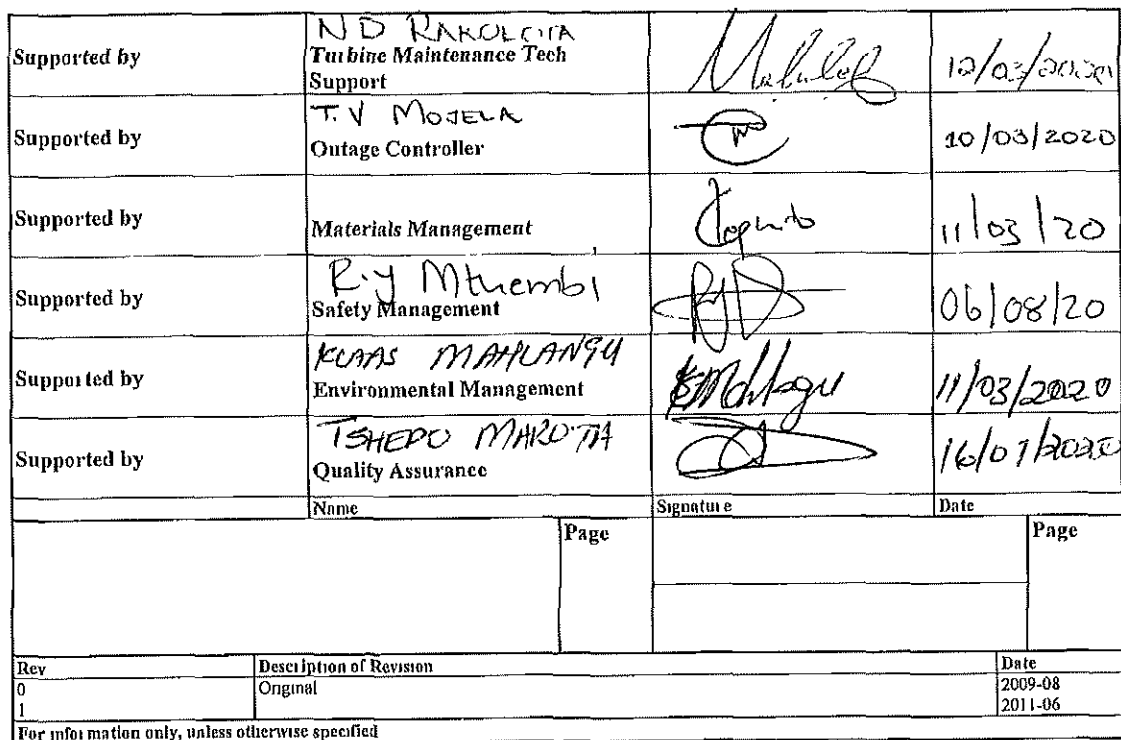 Supported by
N D RAKOLOTA
Turbine Maintenance Tech
Support
12/03/2020
Supported by
T.V MOJELA
Outage Controller
10/03/2020
Supported by
Materials Management
11/03/20
Supported by
R.y Mthembi
Safety Management
06/08/20
Supported by
KLAAS MAHLANGU
Environmental Management
11/03/2020
Supported by
TSHEPO MAROTA
Quality Assurance
16/07/2020
Name
Signature
Date
Page
Page
Rev
Description of Revision
Date
0
Original
2009-08
1
2011-06
For information only, unless otherwise specified